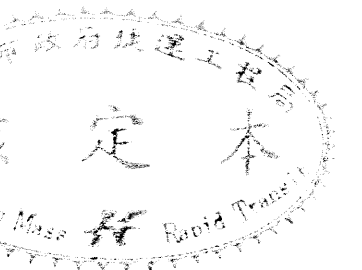 市政府捷運工程局
定本
Mass Rapid Transit